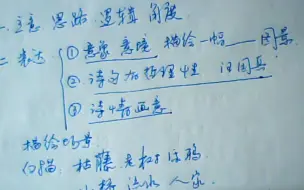 一. 立意 思路 逻辑 角度
二 表达 ① 意象 意境 描绘一幅____图景
② 诗句加哲理性
③ 诗情画意
描绘场景
白描, 枯藤 老树 昏鸦
小桥 流水 人家